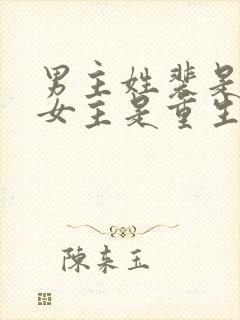 男主姓裴是
女主是重生
陳来玉